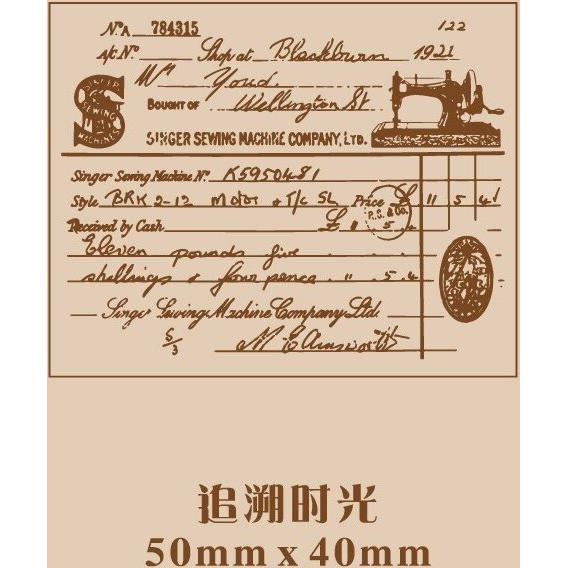 No. A 784315 122
A/C No. Shop at Blackburn 1921
SINGER SEWING MACHINES
Mr Youd.
BOUGHT OF Wellington St
SINGER SEWING MACHINE COMPANY, LTD.
Singer Sewing Machine No. K5950481
Style BRK 2-12 Motor + T/C SL Price £ 11 5 4
R.S. & Co.
Received by Cash £ 11 5 4
Eleven pounds five
shillings & four pence . 11 . 5 . 4
Singer Sewing Machine Company Ltd.
5/3 M E Ainsworth
追溯时光
50mm x 40mm